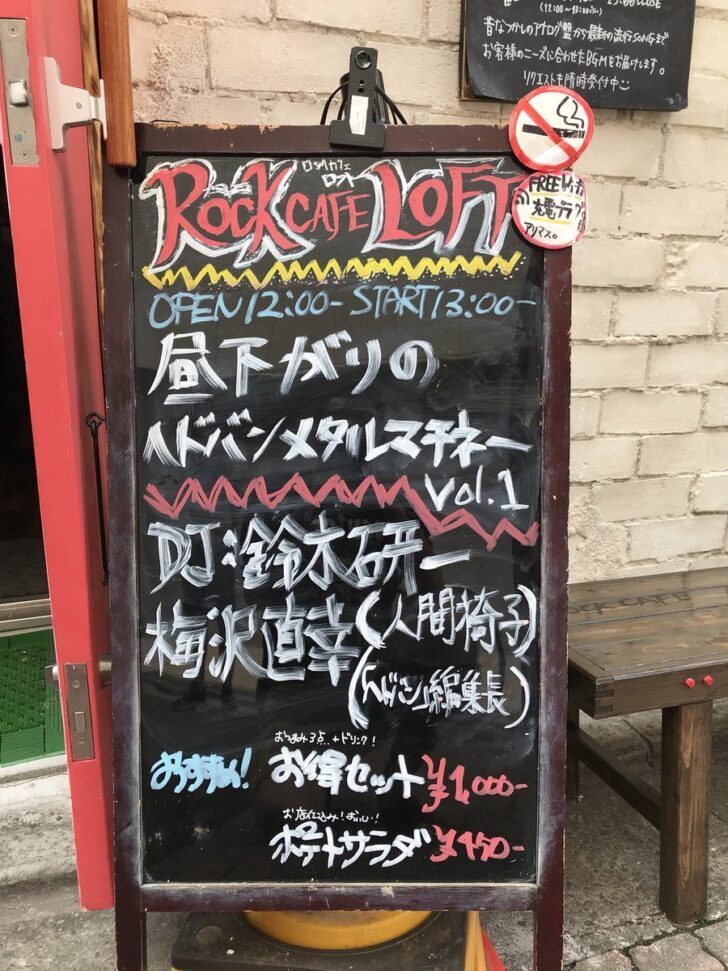 (12:00~13:00/5ぃ)
昔なつかしのアナログ盤から最新の流行SONGまで
お客様のニーズに合わせたBGMをお届けします。
リクエストも随時受付中
FREE Wi-Fi
充電
アリマス。
ロックカフェ
ロフト
ROCK CAFE LOFT
OPEN 12:00- START 13:00-
昼下がりの
ヘドバンメタルマチネー
Vol.1
DJ:鈴木研一
(人間椅子)
梅沢直幸
(「ヘドバン」編集長)
おつまみ3点..+ドリンク!
おすすめ! お得セット ¥1,000-
お店仕込み!おいしい!
ポテトサラダ ¥450-
ROCK CAFE